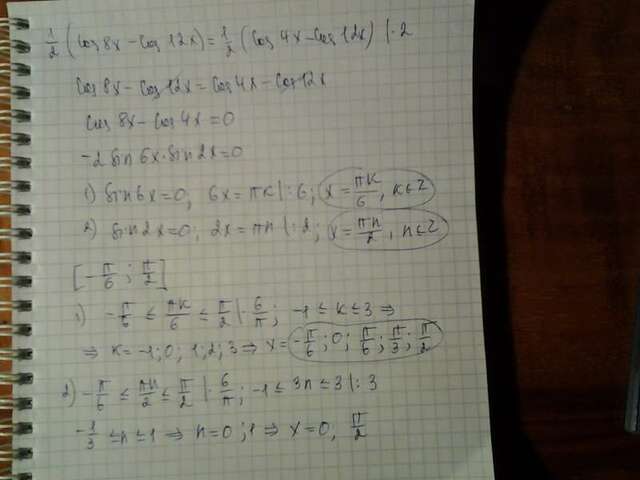 1/2 (cos 8x - cos 12x) = 1/2 (cos 4x - cos 12x) | · 2
cos 8x - cos 12x = cos 4x - cos 12x
cos 8x - cos 4x = 0
-2 sin 6x · sin 2x = 0
1) sin 6x = 0; 6x = πk | : 6; x = πk/6, k ∈ Z
2) sin 2x = 0; 2x = πn | : 2; x = πn/2, n ∈ Z
[-π/6 ; π/2]
1) -π/6 ≤ πk/6 ≤ π/2 | · 6/π; -1 ≤ k ≤ 3 ⇒
⇒ k = -1; 0; 1; 2; 3 ⇒ x = -π/6; 0; π/6; π/3; π/2
2) -π/6 ≤ πn/2 ≤ π/2 | · 6/π; -1 ≤ 3n ≤ 3 | : 3
-1/3 ≤ n ≤ 1 ⇒ n = 0; 1 ⇒ x = 0, π/2